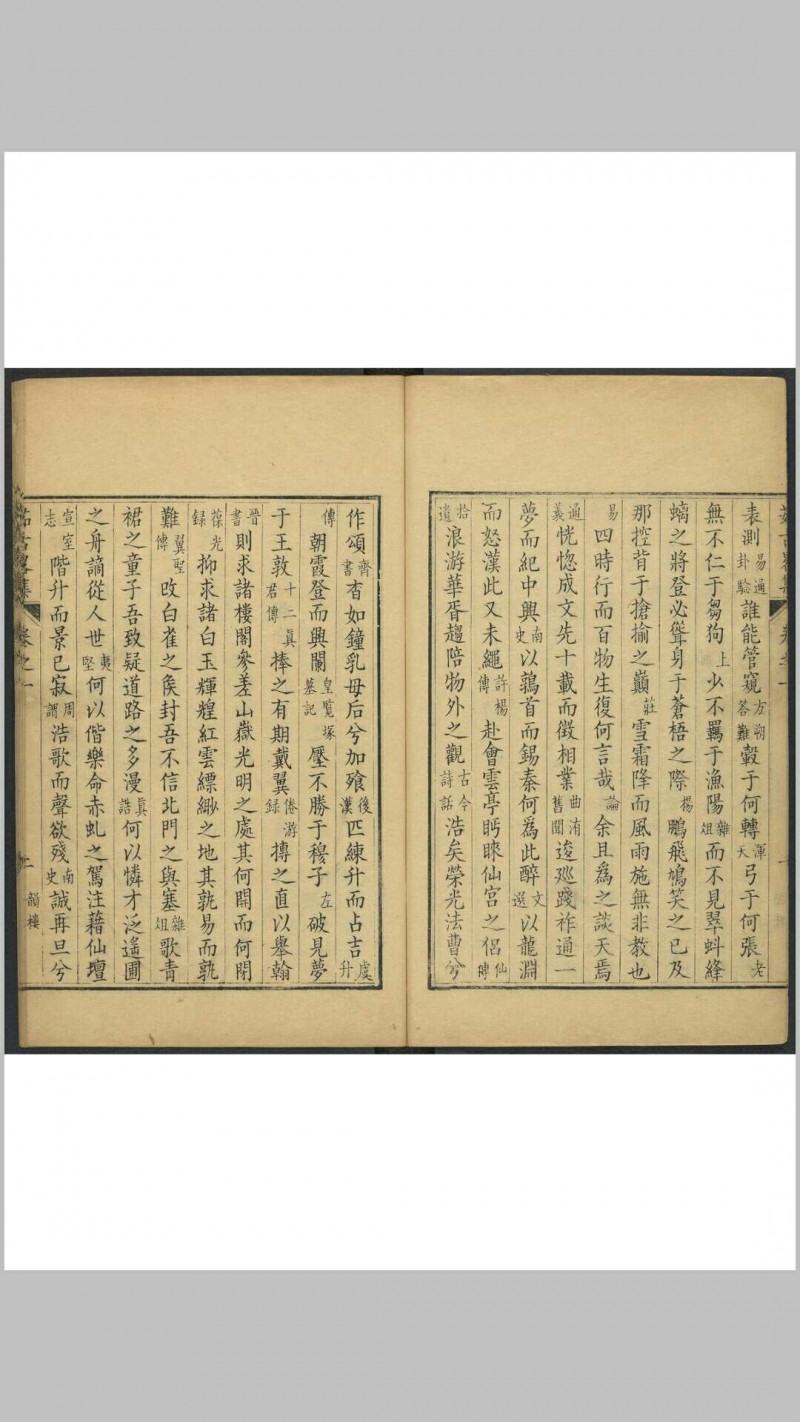 表測易通卦驗誰能管窺方朔答難轂于何轉渾天弓于何張老
無不仁于芻狗上少不羈于漁陽雜俎而不見翠蚪絳
螭之將登必聳身于蒼梧之際楊鵬飛鳩笑之已及
那控背于搶揄之巔莊雪霜降而風雨施無非教也
易四時行而百物生復何言哉論余且為之談天焉
通義恍惚成文先十載而徵相業曲洧舊聞逡廵踐祚通一
夢而紀中興南史以鶉首而錫秦何為此醉文選以龍淵
而怒漢此又未繩許楊傳赴會雲亭眄睞仙宮之侶仙
拾遺浪游華胥趨陪物外之觀古今詩話浩矣榮光法曹兮
作頌齊書杳如鐘乳母后兮加飱後漢匹練升而占吉虞升
傳朝霞登而興闌皇覽塚墓記壓不勝于穆子左破見夢
于王敦十二眞君傳捧之有期戴翼倦游録摶之直以舉翰
晉書則求諸樓閣參差山嶽光明之處其何開而何閉
葆光録抑求諸白玉輝煌紅雲縹緲之地其孰易而孰
難翼聖傳攺白雀之矦封吾不信北門之與塞雜俎歌青
裙之童子吾致疑道路之多漫眞誥何以憐才泛遙圃
之舟謫從人世夷堅何以偕樂命赤虬之駕注藉仙壇
宣室志階升而景已寂周謂浩歌而聲欲殘南史誠再旦兮
卷之一
韻樓